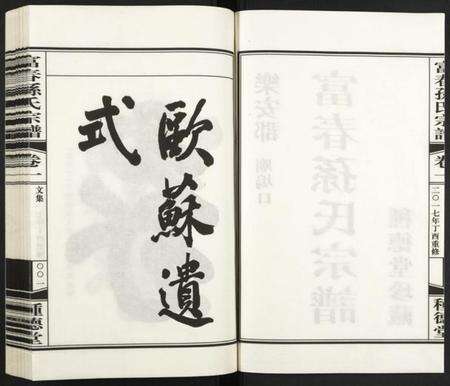 富春孫氏宗譜
卷一
二〇一七年丁酉重修
種德堂
富春孫氏宗譜
樂安郡
剛塢口
種德堂珍藏
歐蘇遺
式
富春孫氏宗譜
卷一
文集
〇〇一
種德堂